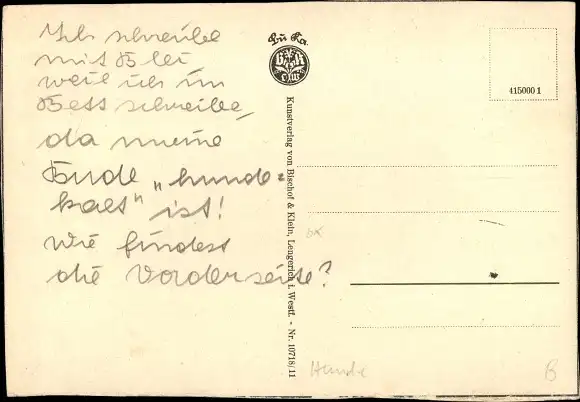 Ich schreibe
mit Blei
weil ich im
Bett schreibe,
da meine
Bude „hunde-
kalt" ist!
Wie findest
die Vorderseite?
Bü Ka
B K
L/W
Kunstverlag von Bischof & Klein, Lengerich i. Westf. - Nr. 10718/11
415000 1
Hunde
B